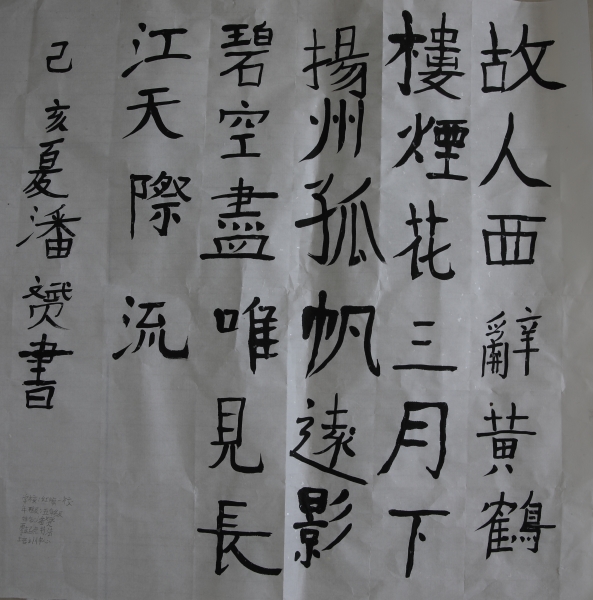 故人西辭黃鶴
樓煙花三月下
揚州孤帆遠影
碧空盡唯見長
江天際流
己亥夏潘赟書